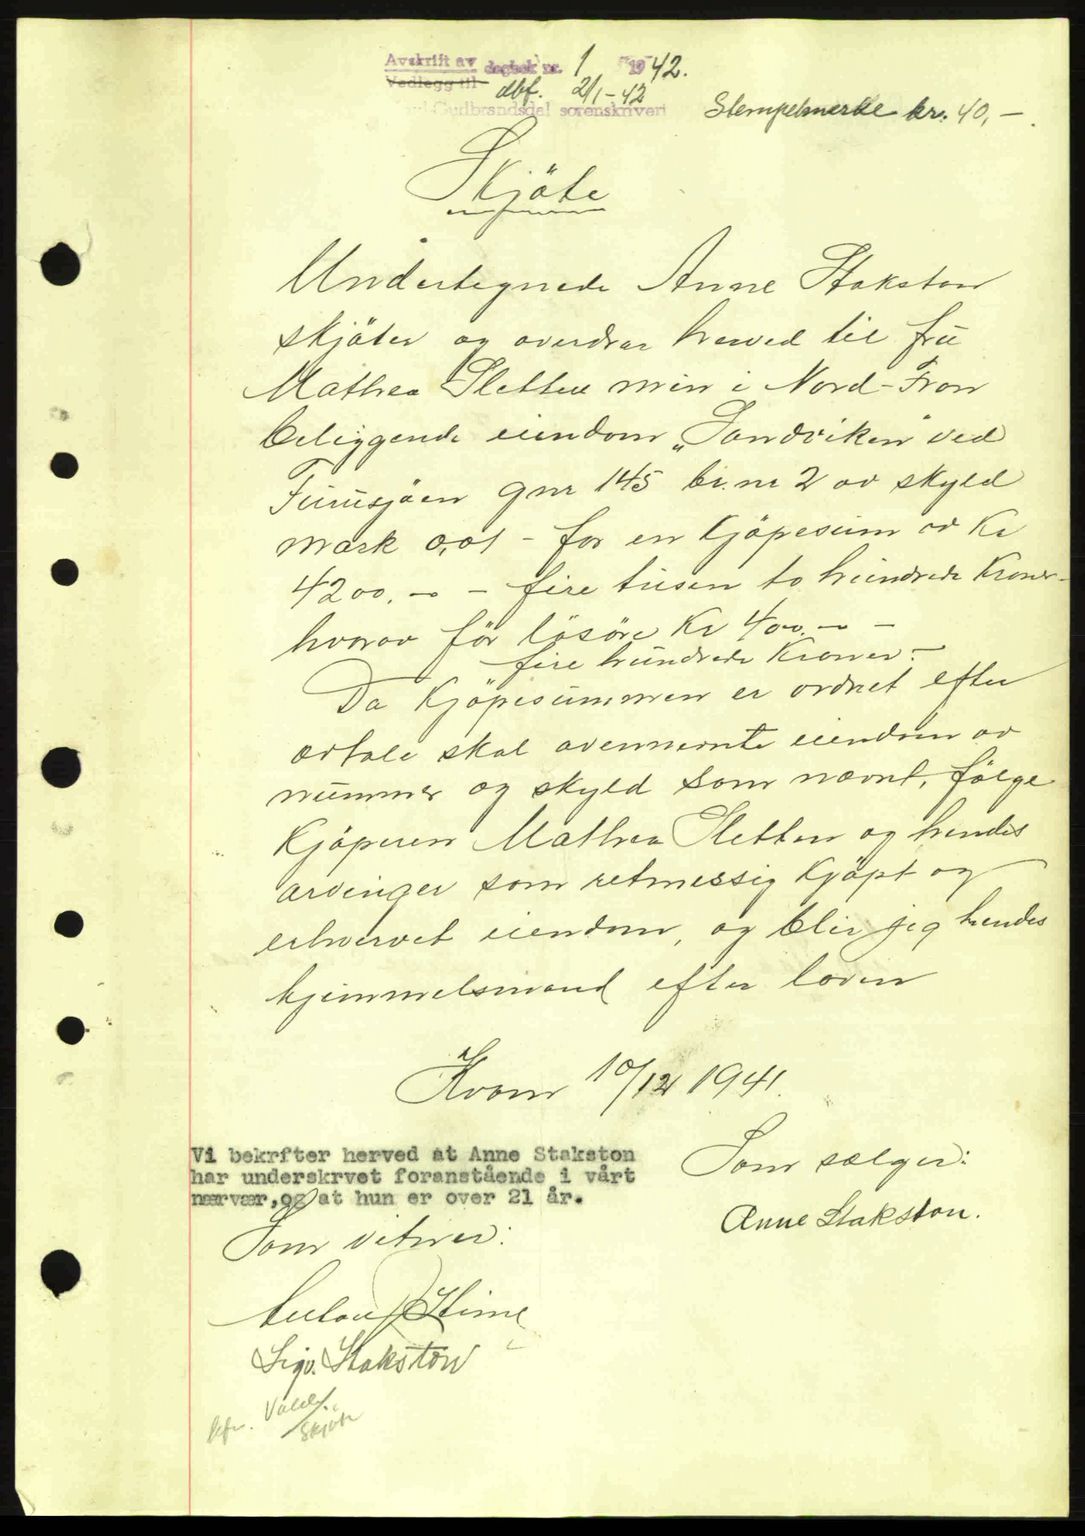 Avskrift av dagbok nr. 1 1942.
Vedlegg til dbf. 2/1-42
Gudbrandsdal sorenskriveri
Stempelmerke kr. 40,-.
Skjöte
Undertegnede Anne Stakston
skjöter og overdrar herved til fru
Mathea Sletten min i Nord-Fron
beliggende eiendom "Sandviken" ved
Furusjöen gnr 145 br.nr 2 av skyld
mark 0,01 - for en kjöpesum av Kr
4200.- - fire tusen to hundrede Kroner-
hvorav för lösöre Kr 400.- -
fire hundrede Kroner.-
Da Kjöpesummen er ordnet efter
avtale skal ovennevnte eiendom av
nummer og skyld som nævnt, fölge
Kjöperen Mathea Sletten og hendes
arvinger som retmessig kjöpt og
erhvervet eiendom, og blir jeg hendes
hjemmelsmand efter loven
Kvam 10/12 1941.
Vi bekrfter herved at Anne Stakston
har underskrvet foranstående i vårt
nærvær,og at hun er over 21 år.
Som sælger:
Anne Stakston.
Som vitner:
Sigv. Stakston
Skjöte